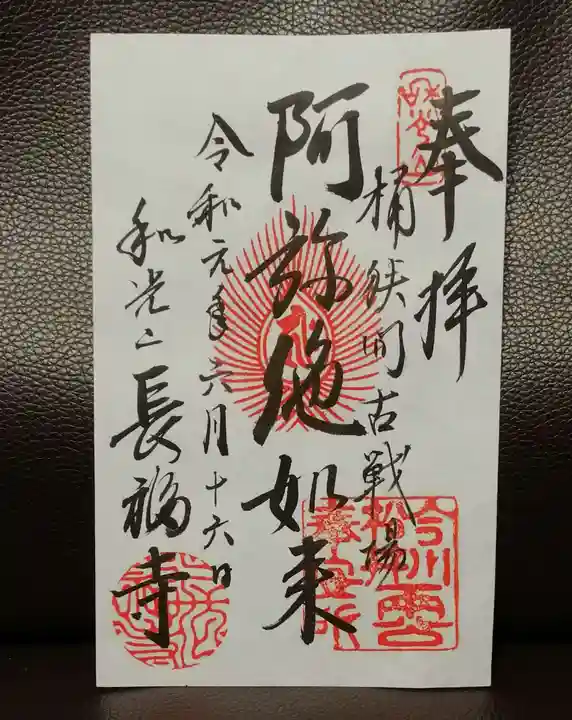 奉拝
桶狭間古戦場
阿弥陀如来
令和元年六月十六日
和光山長福寺